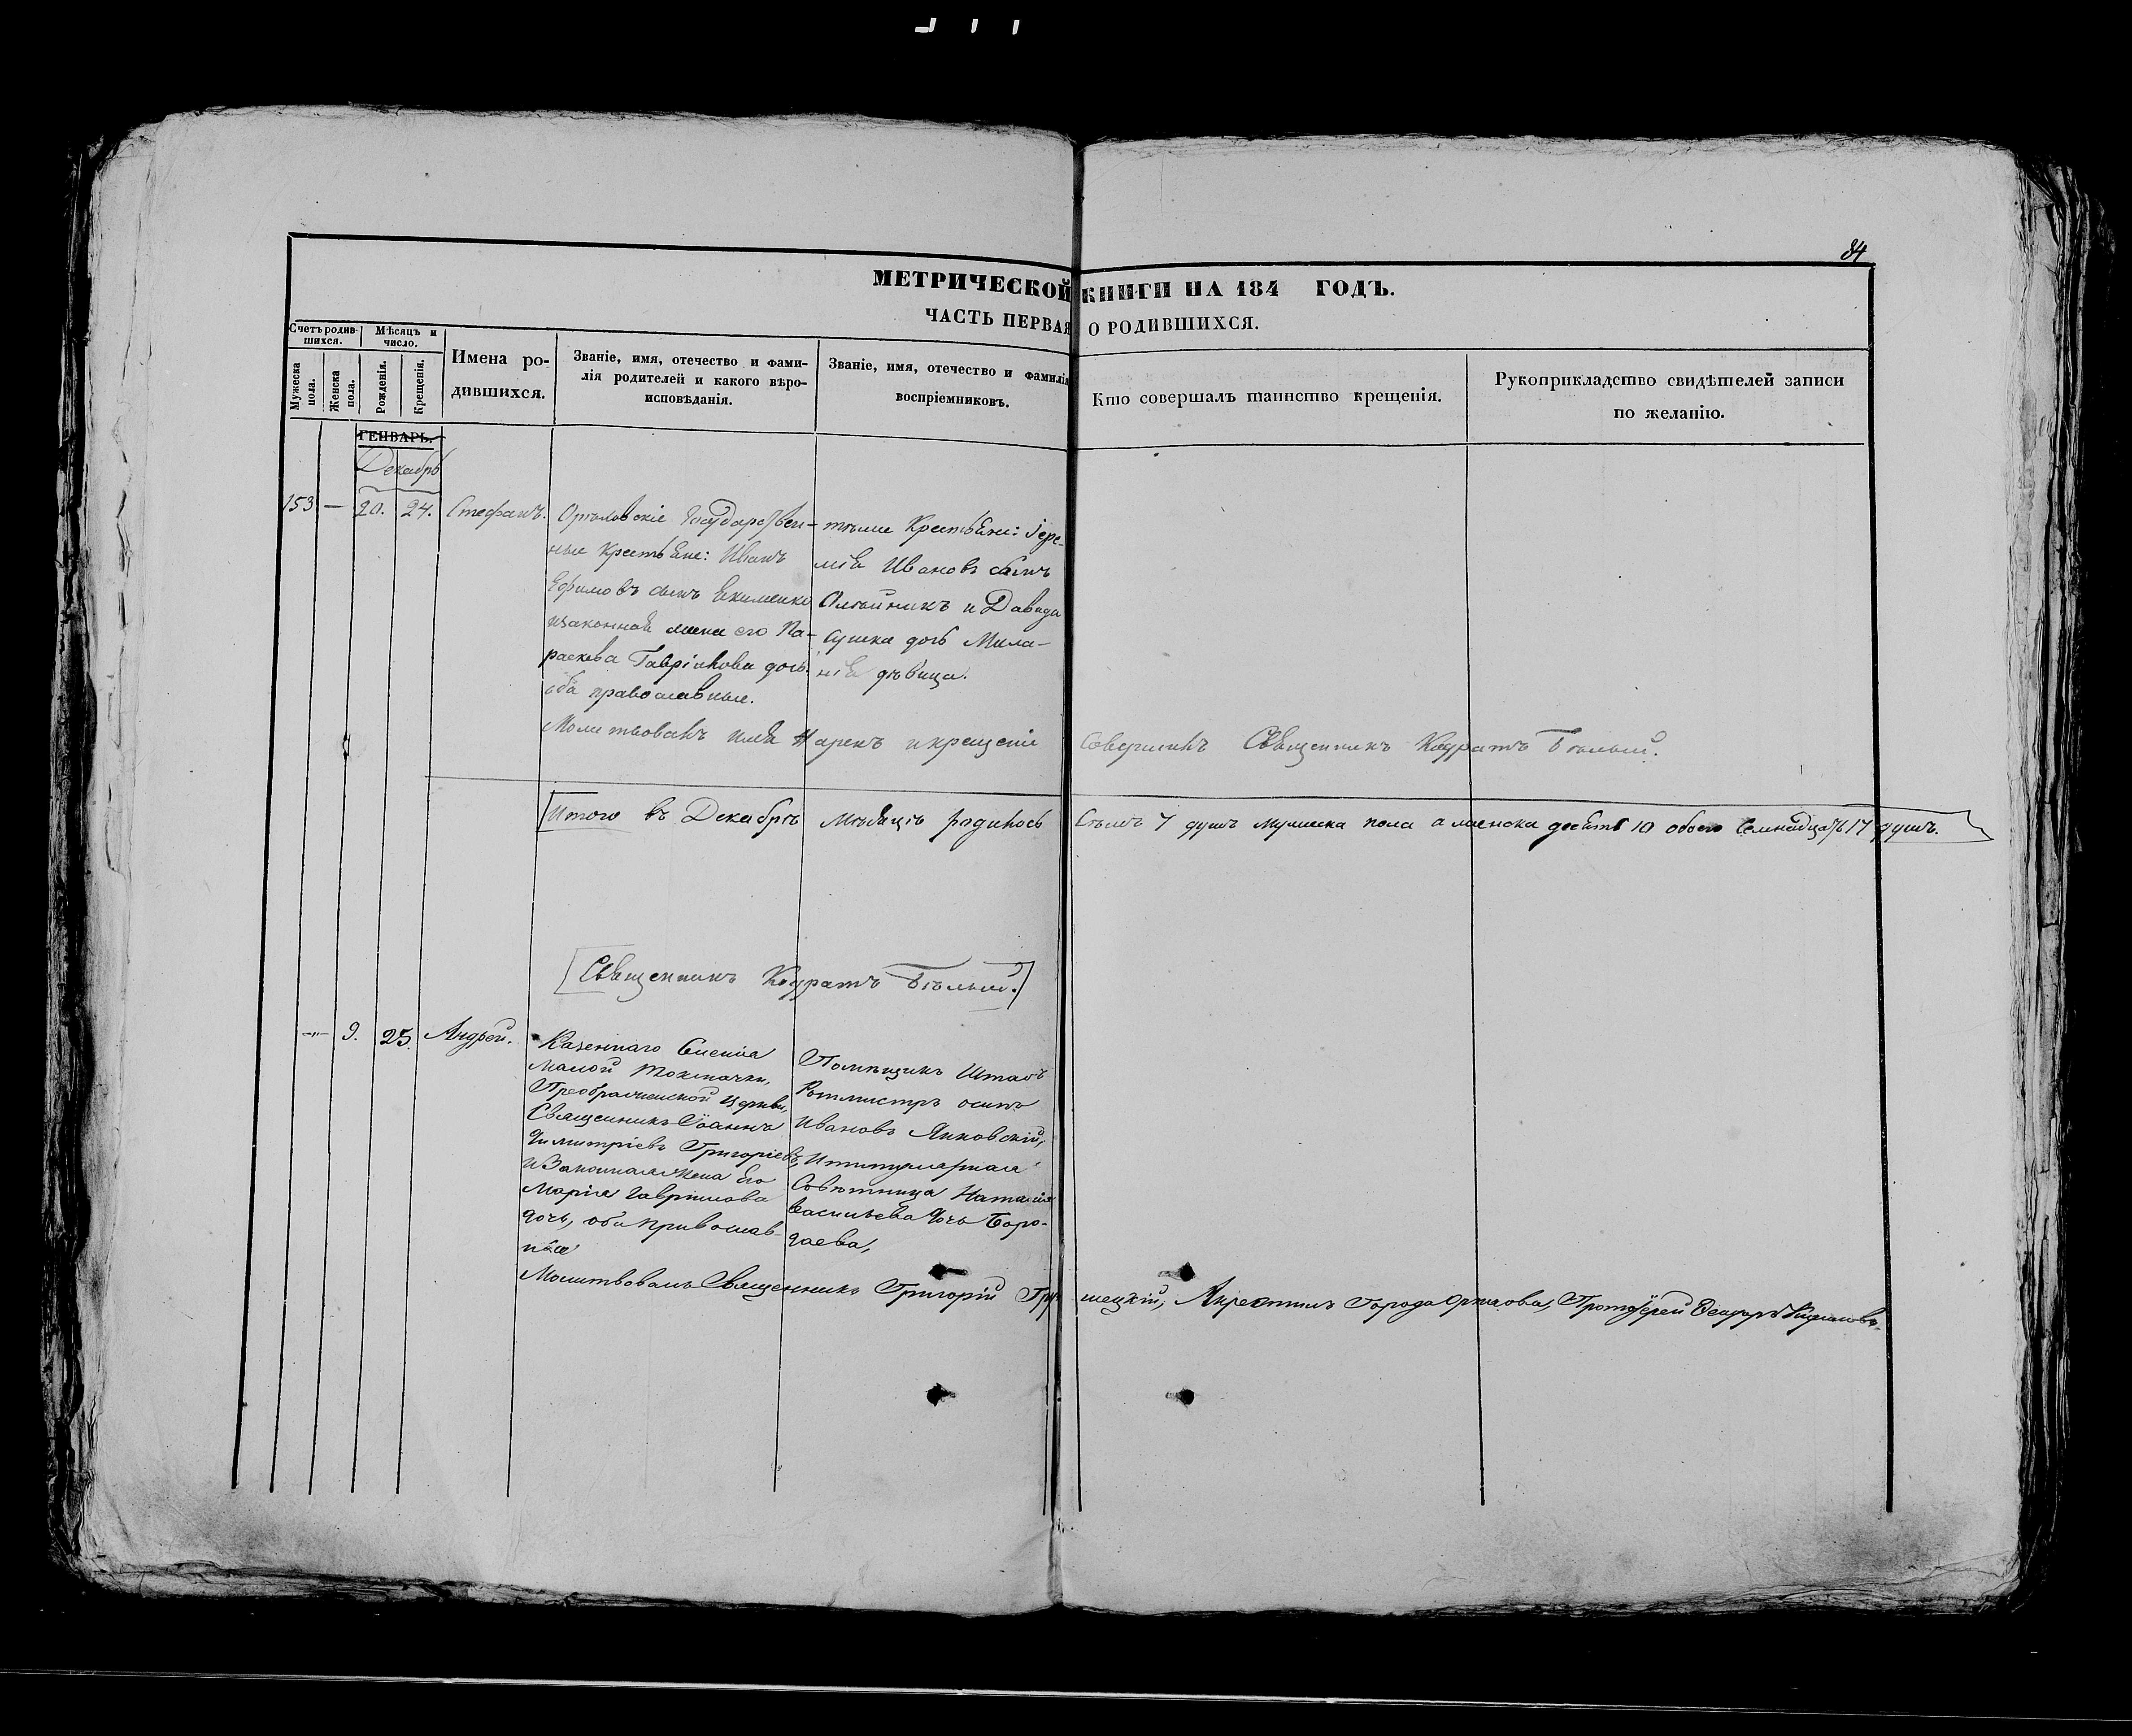 84
МЕТРИЧЕСКОЙ КНИГИ НА 184 ГОДЪ.
ЧАСТЬ ПЕРВАЯ О РОДИВШИХСЯ.
Счетъ родившихся.
Мужеска пола.
Женска пола.
Мѣсяцъ и число.
Рожденія.
Крещенія.
Имена родившихся.
Званіе, имя, отечество и фамилія родителей и какого вѣроисповѣданія.
Званіе, имя, отечество и фамилія воспріемниковъ.
Кто совершалъ таинство крещенія.
Рукоприкладство свидѣтелей записи по желанію.
ГЕНВАРЬ.
Декабрь
153 — 20. 24. Стефанъ.
Орѣховскіе Государствен-
ные Крестьяне: Иванъ
Ефимовъ сынъ Екименко
изаконная жена его Па-
раскева Гавріилова дочь.
оба православные.
тѣже Крестьяне: Іере-
мія Ивановъ сынъ
Олѣйникъ и Давида
дочь Мила-
нія дѣвица.
Молитвовалъ имя нарекъ икрещеніе совершилъ Священникъ Кодратъ Бѣлый.
Итого въ Декабрѣ мѣсяцѣ родилось Семъ 7 душъ мужеска пола а женска десять 10 обоего Семнадцать 17 душъ.
Священникъ Кодратъ Бѣлый.
—"— 9. 25. Андрей.
Казеннаго Селенія
Малой Токмачки,
Преображенской Церкви,
Священникъ Іоаннъ
Димитріевъ Григоріевъ,
иЗаконная жена Его
Марія Гавріилова
дочь, оба православ-
ные
Помѣщикъ Штабъ
Ротмистръ осипъ
Ивановъ Янковскій,
ититулярная
Совѣтница Наталія
васильева дочь Боро-
даева,
Молитвовалъ Священникъ Григорій
Акрестилъ Города Орѣхова, Протоіерей